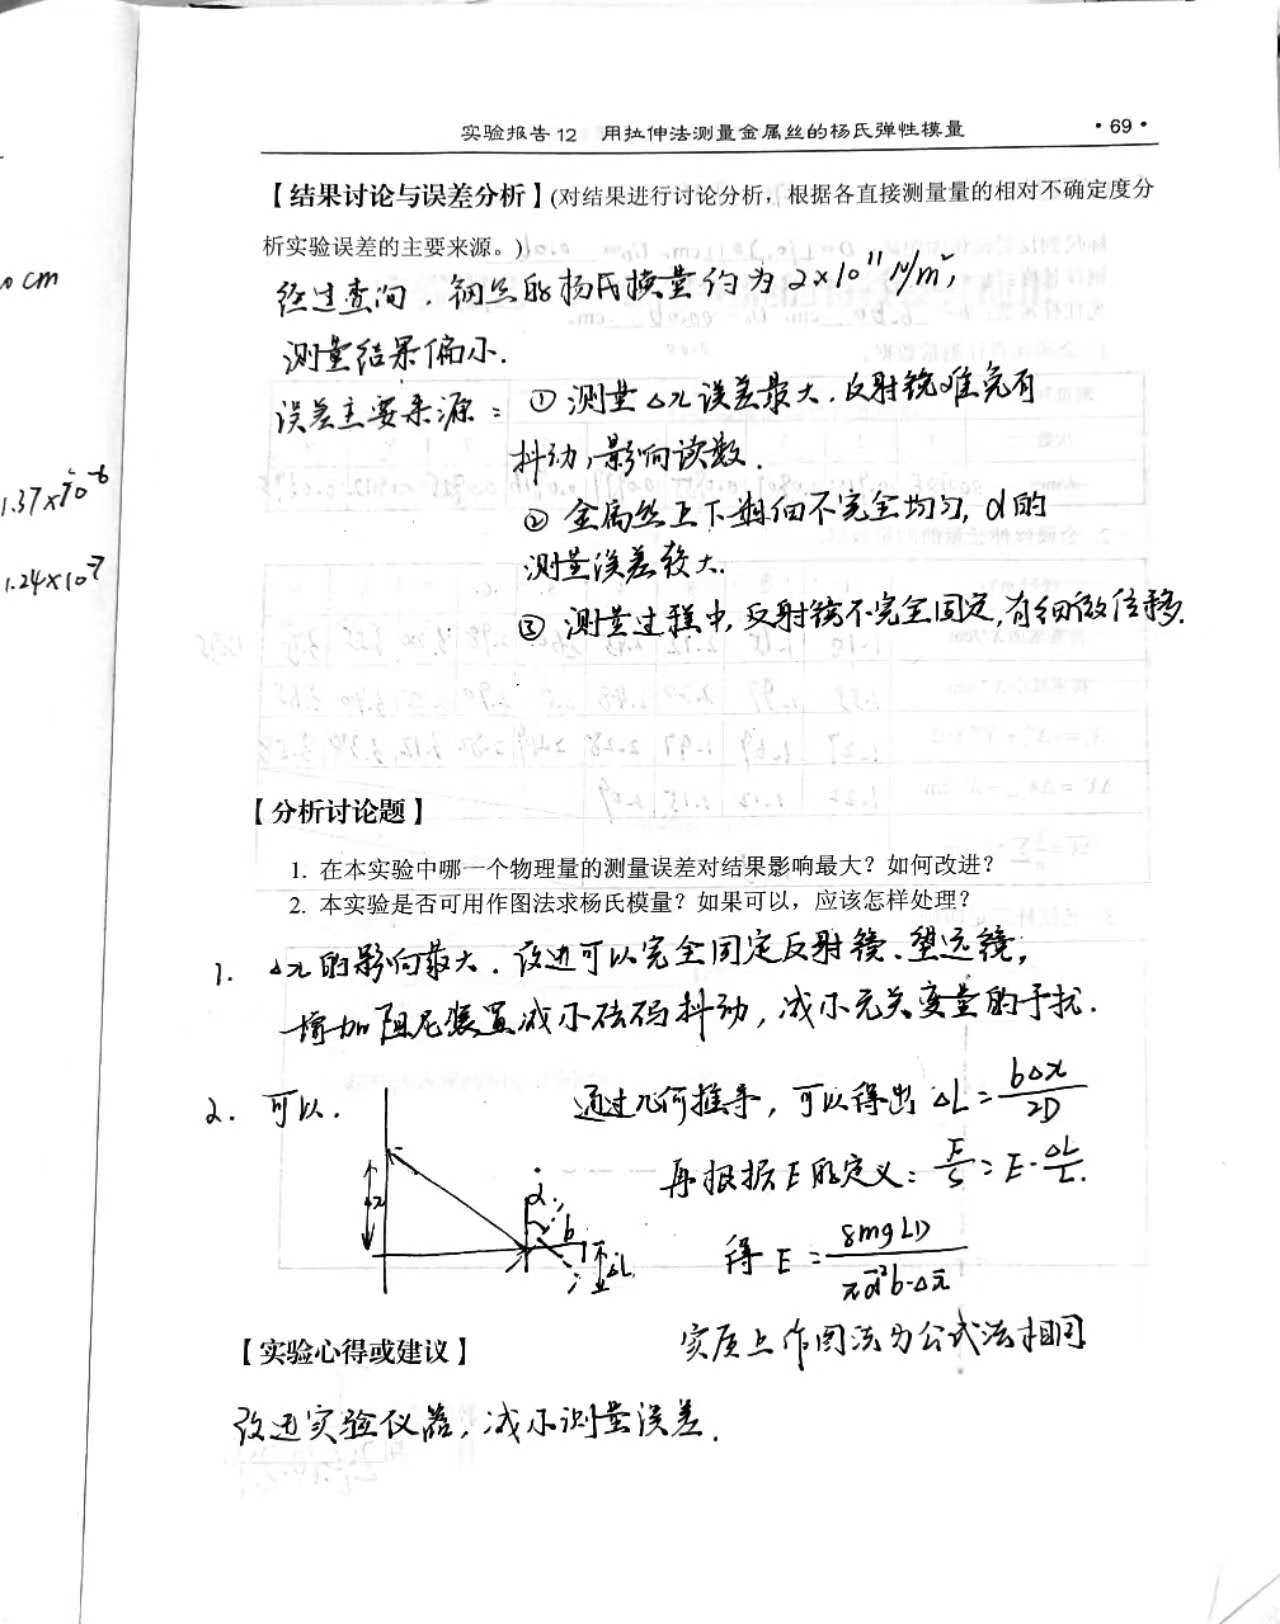 实验报告12 用拉伸法测量金属丝的杨氏弹性模量 ·69·
【结果讨论与误差分析】(对结果进行讨论分析，根据各直接测量量的相对不确定度分
析实验误差的主要来源。)
0 cm
经过查询，钢丝的杨氏模量约为2×10¹¹N/m²，
测量结果偏小.
误差主要来源：① 测量△x误差最大，反射镜难免有
抖动，影响读数.
1.37×10⁻⁶
② 金属丝上下粗细不完全均匀，d的
测量误差较大.
1.24×10⁻⁷
③ 测量过程中，反射镜不完全固定，有细微位移.
【分析讨论题】
1. 在本实验中哪一个物理量的测量误差对结果影响最大？如何改进？
2. 本实验是否可用作图法求杨氏模量？如果可以，应该怎样处理？
1. △x的影响最大．改进可以完全固定反射镜、望远镜，
增加阻尼装置减小砝码抖动，减小无关变量的干扰．
2. 可以． 通过几何推导，可以得出 △L=b△x/2D
再根据E的定义：F/S=E·△L/L.
△x α b △L
得E=8mgLD/πd̄²b·△x̄
实质上作图法为公式法相同
【实验心得或建议】
改进实验仪器，减小测量误差．